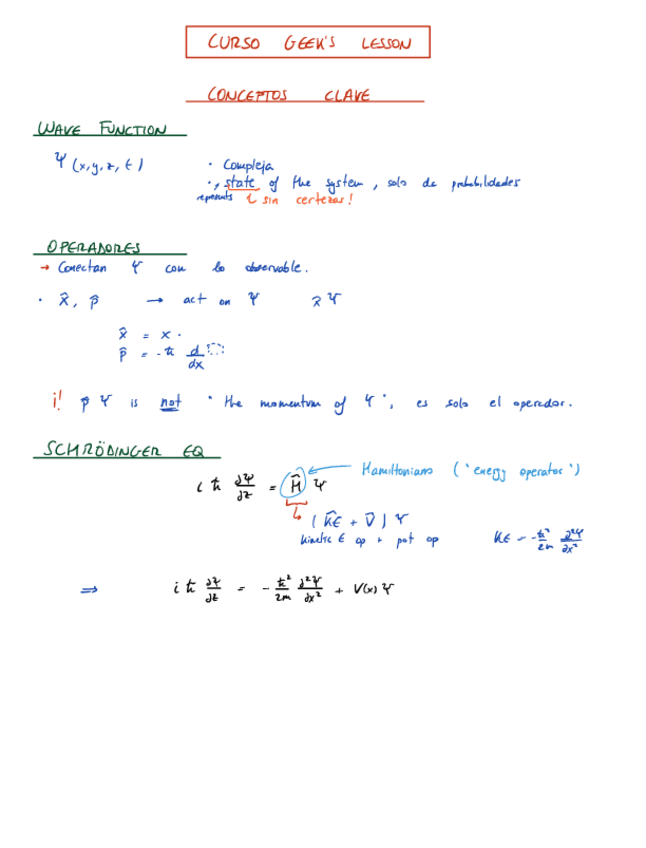 CURSO GEEK'S LESSON
CONCEPTOS CLAVE
WAVE FUNCTION
Ψ (x,y,z,t)
· Compleja
· state of the system, solo de probabilidades
represents ↳ sin certezas!
OPERADORES
→ Conectan Ψ con lo observable.
· x̂, p̂ → act on Ψ x̂Ψ
x̂ = x ·
p̂ = -ħ d/dx
¡! p̂ Ψ is not "the momentum of Ψ", es solo el operador.
SCHRÖDINGER EQ
iħ ∂Ψ/∂t = Ĥ Ψ ← Hamiltoniano ("energy operator")
↳ (K̂E + V̂) Ψ
kinetic E op + pot op
KE = -ħ²/2m ∂²Ψ/∂x²
⇒ iħ ∂Ψ/∂t = -ħ²/2m ∂²Ψ/∂x² + V(x) Ψ